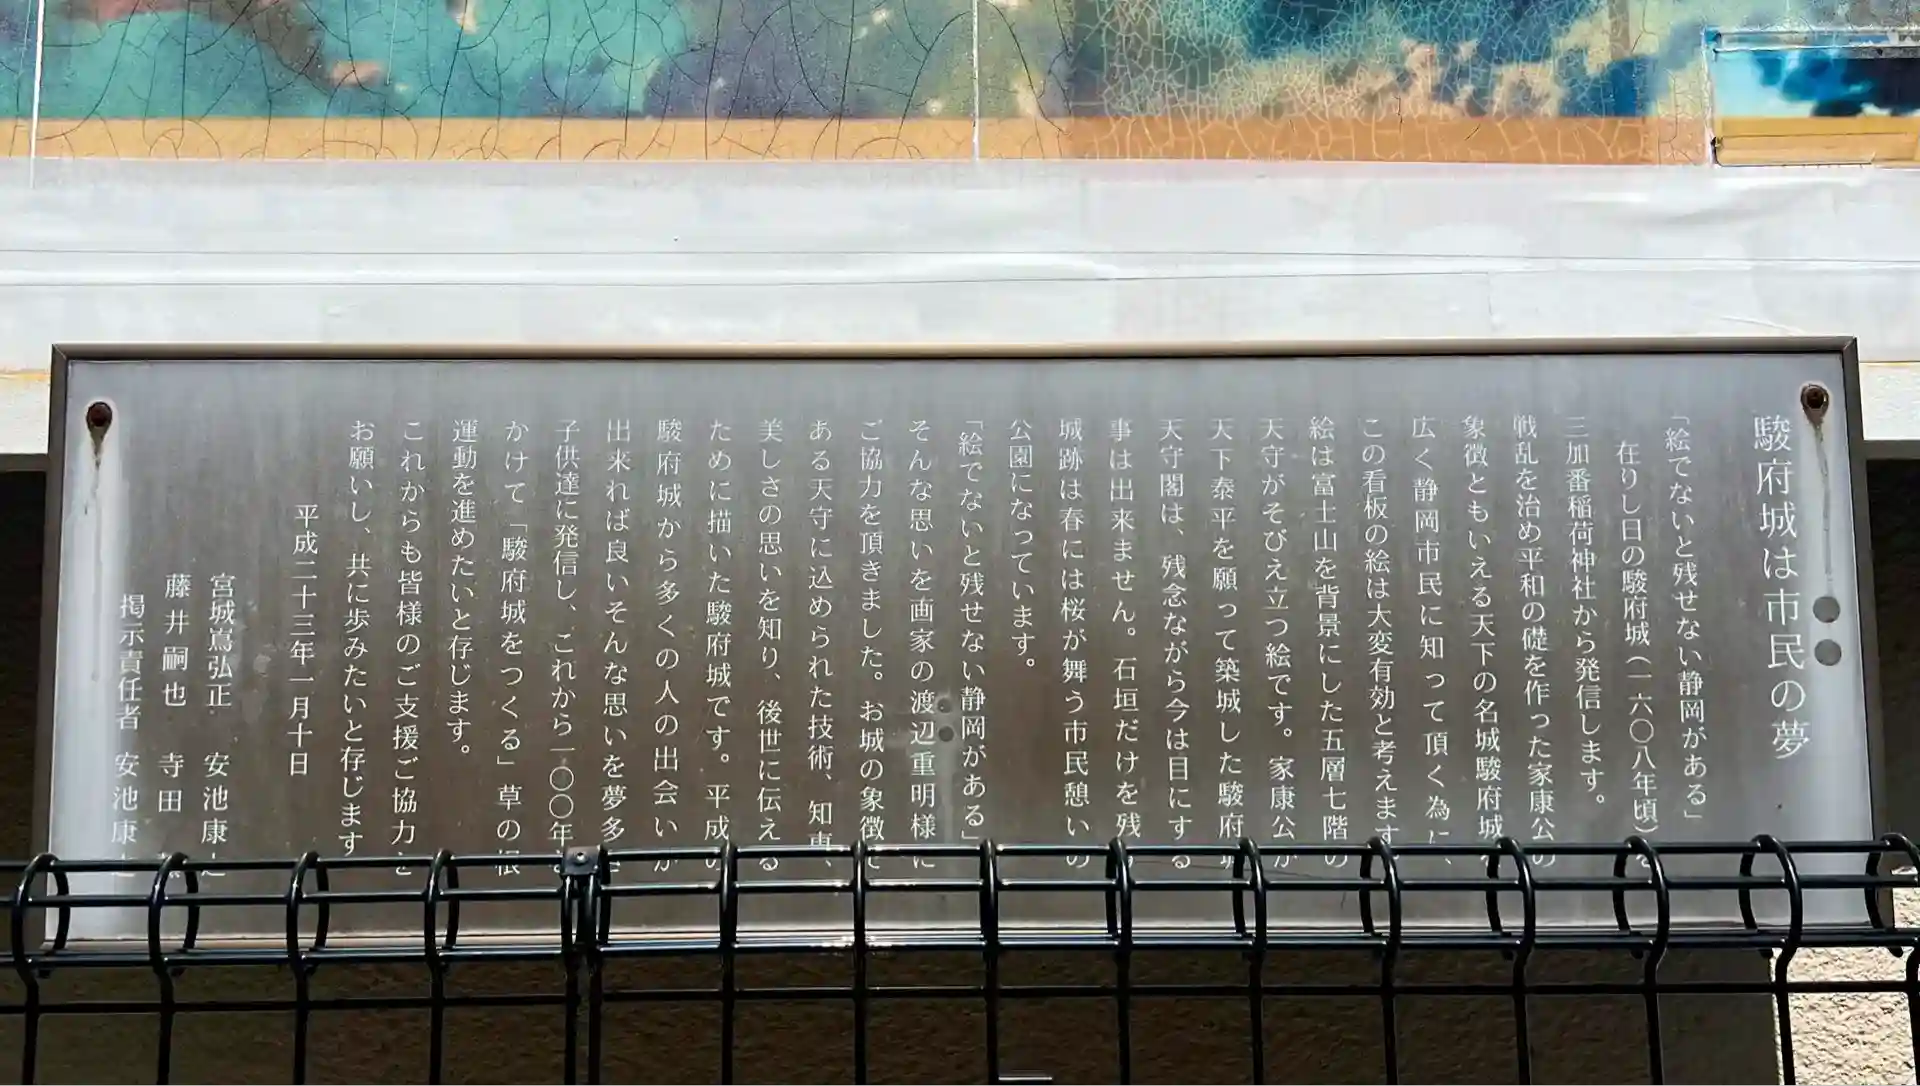 駿府城は市民の夢
「絵でないと残せない静岡がある」
在りし日の駿府城(一六〇八年頃)を
三加番稲荷神社から発信します。
戦乱を治め平和の礎を作った家康公の
象徴ともいえる天下の名城駿府城を
広く静岡市民に知って頂く為に、
この看板の絵は大変有効と考えます
絵は富士山を背景にした五層七階の
天守がそびえ立つ絵です。家康公が
天下泰平を願って築城した駿府城
天守閣は、残念ながら今は目にする
事は出来ません。石垣だけを残す
城跡は春には桜が舞う市民憩いの
公園になっています。
「絵でないと残せない静岡がある」
そんな思いを画家の渡辺重明様に
ご協力を頂きました。お城の象徴で
ある天守に込められた技術、知恵、
美しさの思いを知り、後世に伝える
ために描いた駿府城です。平成の
駿府城から多くの人の出会いが
出来れば良いそんな思いを夢多き
子供達に発信し、これから一〇〇年を
かけて「駿府城をつくる」草の根
運動を進めたいと存じます。
これからも皆様のご支援ご協力を
お願いし、共に歩みたいと存じます
平成二十三年一月十日
宮城嶌弘正 安池康
藤井嗣也 寺田
掲示責任者 安池康